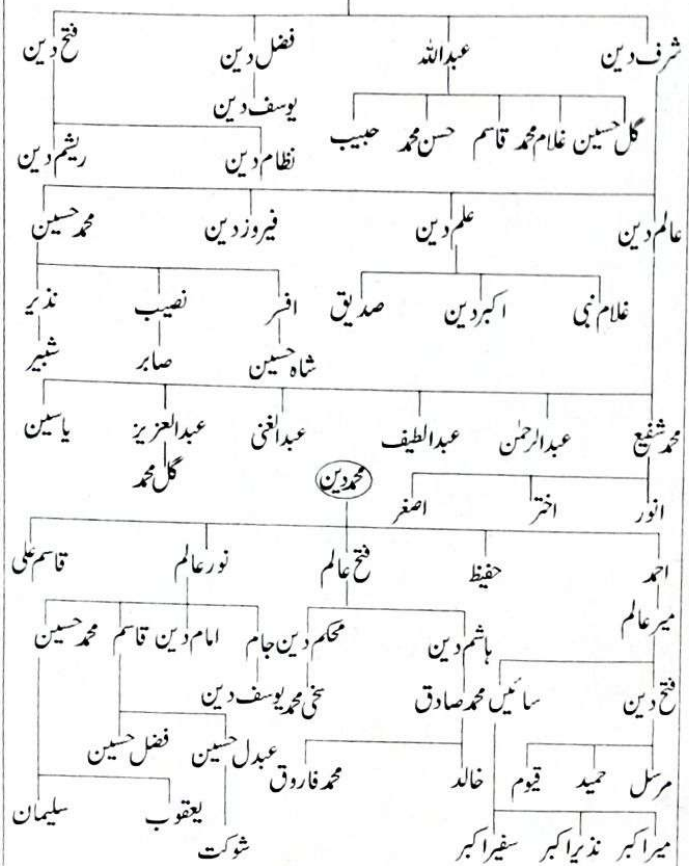 شرف دین عبداللہ فضل دین فتح دین
یوسف دین
گل حسین غلام محمد قاسم حسن محمد حبیب
نظام دین ریشم دین
عالم دین علم دین فیروز دین محمد حسین
غلام نبی اکبر دین صدیق افسر نصیب نذیر
شاہ حسین صابر شبیر
محمد شفیع عبدالرحمٰن عبدالطیف عبدالغنی عبدالعزیز یاسین
گل محمد
محمد دین
انور اختر اصغر
احمد حفیظ فتح عالم نور عالم قاسم علی
میر عالم
ہاشم دین محکم دین جام امام دین قاسم محمد حسین
فتح دین سائیں محمد صادق سخی محمد یوسف دین
فضل حسین عبدل حسین
مرسل حمید قیوم خالد محمد فاروق
یعقوب سلیمان
میر اکبر نذیر اکبر سفیر اکبر شوکت